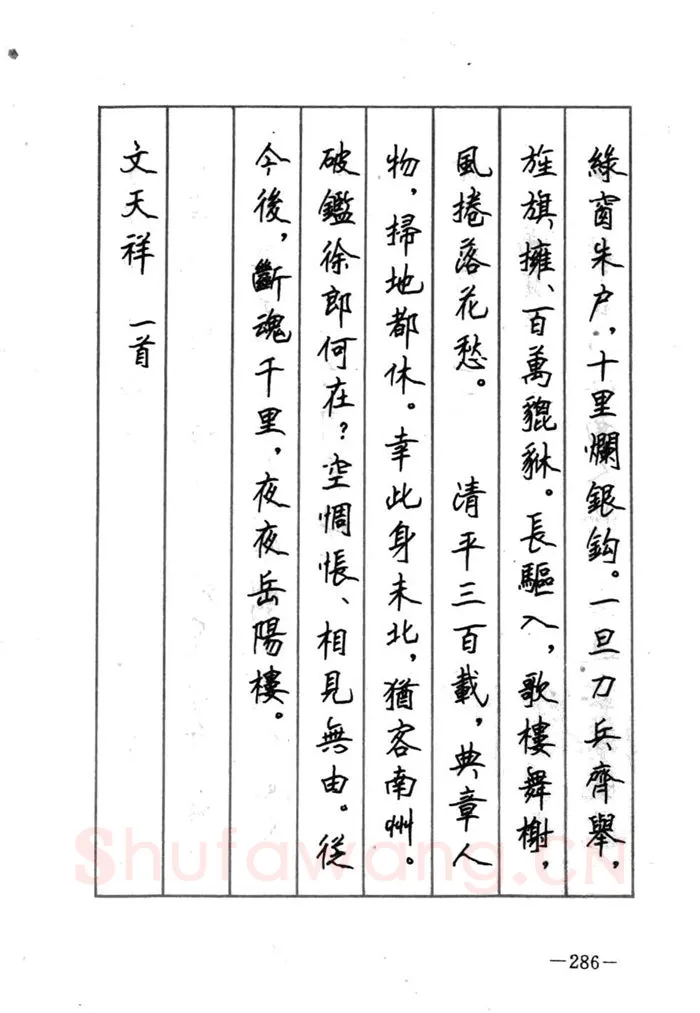 綠窗朱户，十里爛銀鈎。一旦刀兵齊舉，
旌旗擁、百萬貔貅。長驅入，歌樓舞榭，
風捲落花愁。　清平三百載，典章人
物，掃地都休。幸此身未北，猶客南州。
破鑑徐郎何在？空惆悵、相見無由。從
今後，斷魂千里，夜夜岳陽樓。
文天祥　一首
Shufawang.CN
—286—